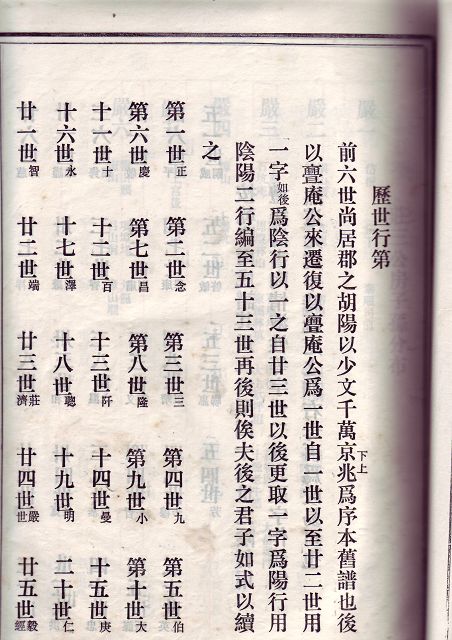 歷世行第
前六世尚居郡之胡陽以少文千萬京兆上下爲序本舊譜也後
以亹庵公來遷復以亹庵公爲一世自一世以至廿二世用
一字如後爲陰行以一之自廿三世以後更取一字爲陽行用
陰陽二行編至五十三世再後則俟夫後之君子如式以續
之
第一世正 第二世念 第三世三 第四世九 第五世伯
第六世慶 第七世昌 第八世隆 第九世小 第十世大
十一世十 十二世百 十三世阡 十四世曼 十五世庚
十六世永 十七世澤 十八世聰 十九世明 二十世仁
廿一世智 廿二世端 廿三世莊濟 廿四世嚴世 廿五世毅經